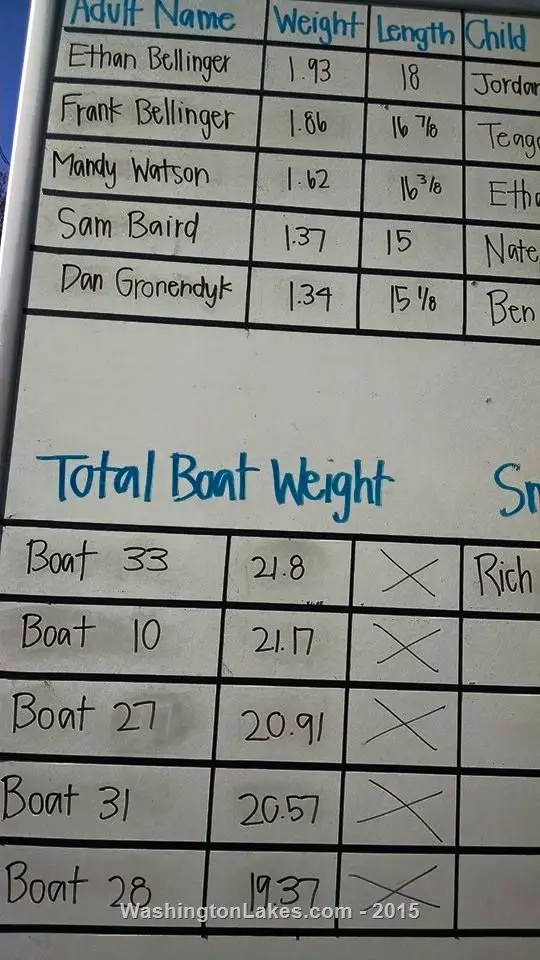 Adult Name Weight Length Child
Ethan Bellinger 1.93 18 Jordan
Frank Bellinger 1.86 16 7/8 Teag
Mandy Watson 1.62 16 3/8 Etha
Sam Baird 1.37 15 Nate
Dan Gronendyk 1.34 15 1/8 Ben
Total Boat Weight Sm
Boat 33 21.8 X Rich
Boat 10 21.17 X
Boat 27 20.91 X
Boat 31 20.57 X
Boat 28 19.37 X
WashingtonLakes.com - 2015